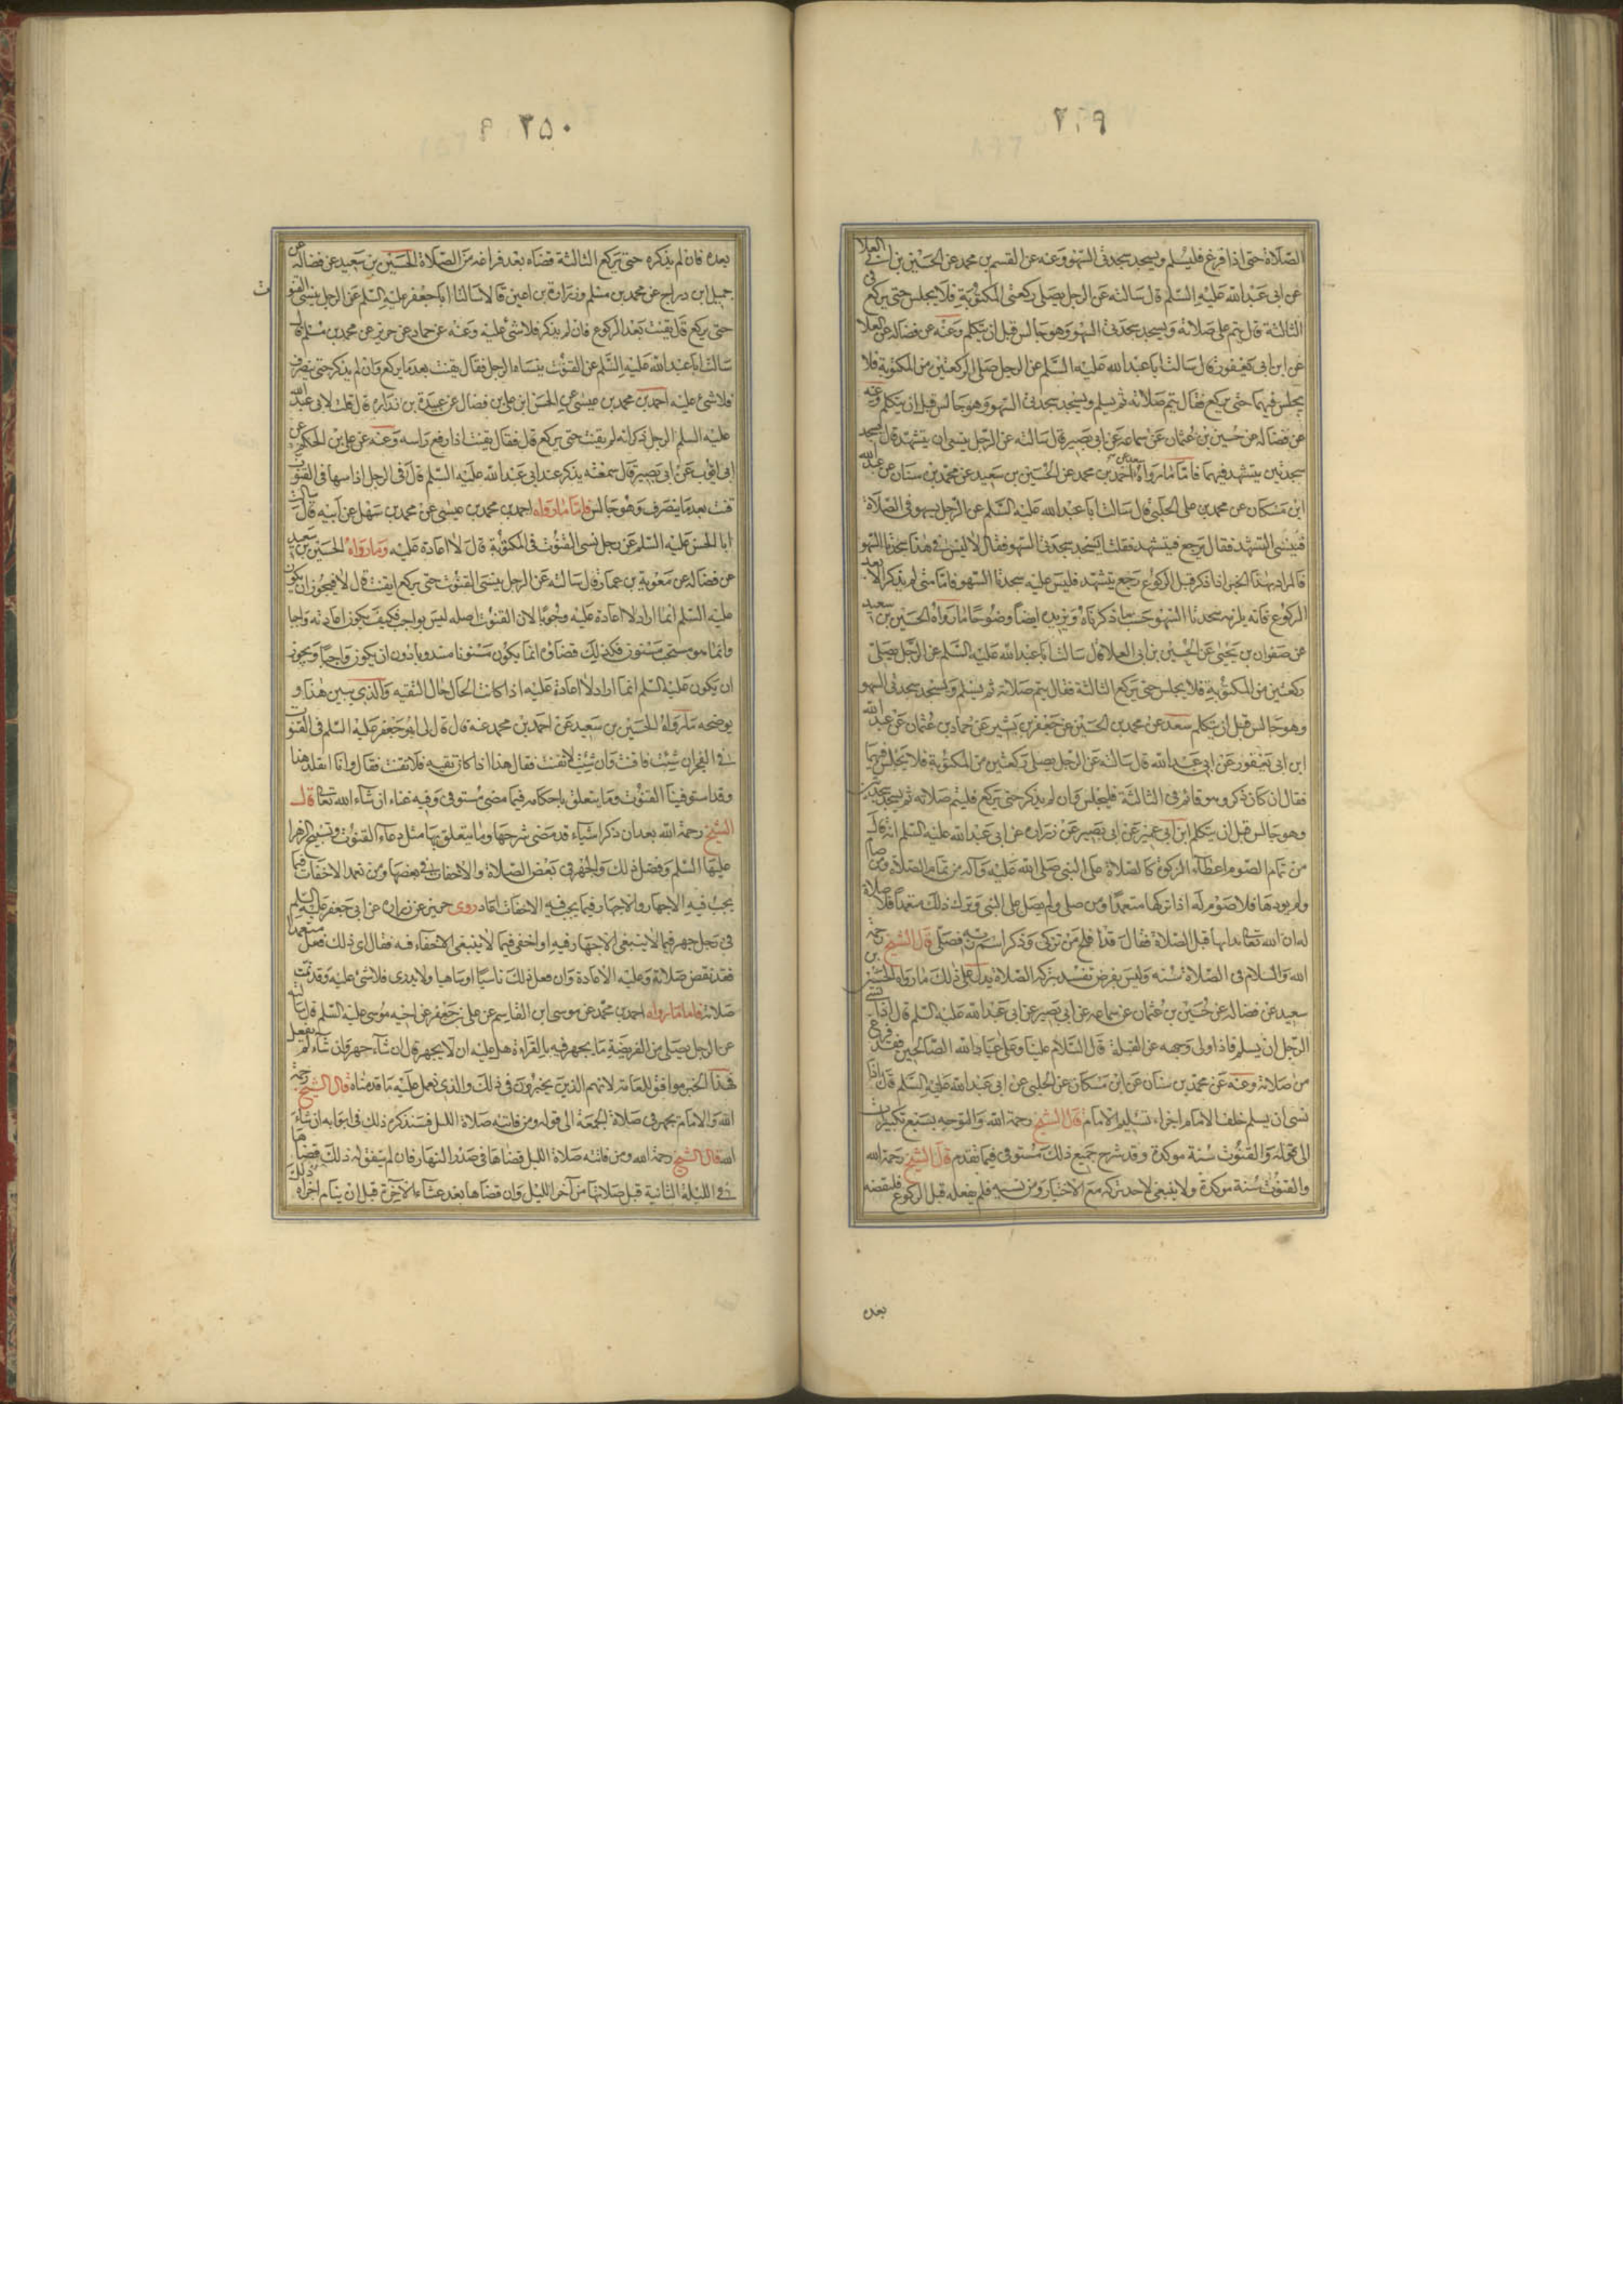 ٢٤٩
الصلاة حتى اذا فرغ فليسلم ويسجد سجدتى السهو وعنه عن القسم بن محمد عن الحسين بن ابى العلا
عن ابى عبدالله عليه السلم قال سالته عن الرجل يصلى ركعتى المكتوبة فلا يجلس حتى يركع فى
الثالثة قال يتم على صلاته ويسجد سجدتى السهو وهو جالس قبل ان يتكلم وعنه عن فضاله عن العلا
عن ابن ابى يعفور قال سالت ابا عبدالله عليه السلم عن الرجل صلى الركعتين من المكتوبة فلا
يجلس فيهما حتى يركع فقال يتم صلاته ثم يسلم ويسجد سجدتى السهو وهو جالس قبل ان يتكلم وعنه
عن فضاله عن حسين بن عثمان عن سماعه عن ابى بصير قال سالته عن الرجل ينسى ان يتشهد قال يسجد
سجدتين يتشهد فيهما فاما ما رواه احمد بن محمد عن الحسين بن سعيد عن محمد بن سنان عن عبدالله
ابن مسكان عن محمد بن على الحلبى قال سالت ابا عبدالله عليه السلم عن الرجل يسهو فى الصلاة
فينسى التشهد فقال يرجع فيتشهد فقلت ايسجد سجدتى السهو فقال لا ليس فى هذا سجدتا السهو
فالمراد بهذا الخبر اذا ذكر قبل الركوع رجع يتشهد فليس عليه سجدتا السهو فاما متى لم يذكر الا بعد
الركوع فانه يلزمه سجدتا السهو حسب ما ذكرناه ويزيده ايضا وضوحا ما رواه الحسين بن سعيد
عن صفوان بن يحيى عن الحسين بن ابى العلا قال سالت ابا عبدالله عليه السلم عن الرجل يصلى
ركعتين من المكتوبة فلا يجلس حتى يركع الثالثة فقال يتم صلاته ثم يسلم وليسجد سجدتى السهو
وهو جالس قبل ان يتكلم سعد عن محمد بن الحسين عن جعفر بن بشير عن حماد بن عثمان عن عبدالله
ابن ابى يعفور عن ابى عبدالله قال سالته عن الرجل يصلى ركعتين من المكتوبة فلا يجلس فيهما
فقال ان كان ذكر وهو قائم فى الثالثة فليجلس وان لم يذكر حتى يركع فليتم صلاته ثم يسجد سجدتين
وهو جالس قبل ان يتكلم ابن ابى عمير عن ابى بصير عن زراره عن ابى عبدالله عليه السلم انه قال
من تمام الصوم اعطاء الزكوة كالصلاة على النبى صلى الله عليه وآله من تمام الصلاة ومن صام
ولم يودها فلا صوم له اذا تركها متعمدا ومن صلى ولم يصل على النبى وترك ذلك متعمدا فلا صلاة
له ان الله تعالى بدا بها قبل الصلاة فقال قد افلح من تزكى وذكر اسم ربه فصلى قال الشيخ رحمه
الله والسلام فى الصلاة سنة وليس بفرض تفسد بتركه الصلاة يدل على ذلك ما رواه الحسين بن
سعيد عن فضاله عن حسين بن عثمان عن سماعه عن ابى بصير عن ابى عبدالله عليه السلم قال اذا نسى
الرجل ان يسلم فاذا ولى وجهه عن القبلة قال السلام علينا وعلى عباد الله الصالحين فقد فرغ
من صلاته وعنه عن محمد بن سنان عن ابن مسكان عن الحلبى عن ابى عبدالله عليه السلم قال اذا
نسى ان يسلم خلف الامام اجزاه تسليم الامام قال الشيخ رحمه الله والتوجه بسبع تكبيرات
الى قوله والقنوت سنة موكدة وقد شرح جميع ذلك مستوفى فيما تقدم قال الشيخ رحمه الله
والقنوت سنة موكدة ولا ينبغى لاحد تركه مع الاختيار ومن نسيه فلم يفعله قبل الركوع فليقضه
بعده
٢٥٠
بعده فان لم يذكره حتى يركع الثالثة قضاه بعد فراغه من الصلاة الحسين بن سعيد عن فضاله عن
جميل ابن دراج عن محمد بن مسلم وزرارة بن اعين قالا سالنا ابا جعفر عليه السلم عن الرجل ينسى القنوت
حتى يركع قال يقنت بعد الركوع فان لم يذكر فلا شئ عليه وعنه عن حماد عن حريز عن محمد بن مسلم قال
سالت ابا عبدالله عليه السلم عن القنوت ينساه الرجل فقال يقنت بعد ما يركع وان لم يذكر حتى ينصرف
فلا شئ عليه احمد بن محمد بن عيسى عن الحسن ابن على بن فضال عن عبيد بن زراره قال قلت لابى عبدالله
عليه السلم الرجل ذكر انه لم يقنت حتى يركع قال فقال يقنت اذا رفع راسه وعنه عن على بن الحكم عن
ابى ايوب عن ابى بصير قال سمعته يذكر عند ابى عبدالله عليه السلم قال فى الرجل اذا سها فى القنوت
قنت بعد ما ينصرف وهو جالس فاما ما رواه احمد بن محمد بن عيسى عن محمد بن سهل عن ابيه قال سالت
ابا الحسن عليه السلم عن رجل نسى القنوت فى المكتوبة قال لا اعادة عليه وما رواه الحسين بن سعيد
عن فضاله عن معوية بن عمار قال سالته عن الرجل ينسى القنوت حتى يركع ايقنت قال لا فيجوز ان يكون
عليه السلم انما اراد لا اعادة عليه وجوبا لان القنوت اصله ليس بواجب فكيف يكون اعادته واجبا
وانما هو مستحب مسنون فكذلك قضاؤه انما يكون مسنونا مندوبا دون ان يكون واجبا ويجوز
ان يكون عليه السلم انما اراد لا اعادة عليه اذا كانت الحال حال التقيه والذى يبين هذا و
يوضحه ما رواه الحسين بن سعيد عن احمد بن محمد عنه قال قال لى ابو جعفر عليه السلم فى القنوت
فى الفجر ان شئت فاقنت وان شئت لا تقنت فقال هذا اذا كان تقيه فلا تقنت فقال وانا اتقلد هذا
وقد استوفينا القنوت وما يتعلق باحكامه فيما مضى مستوفى وفيه غناء ان شاء الله تعالى قال
الشيخ رحمه الله بعد ان ذكر اشياء قد مضى شرحها وما يتعلق بها مثل دعاء القنوت وتسبيح الزهرا
عليها السلم وفضل ذلك والجهر فى بعض الصلاة والاخفات فى بعضها ومن تعمد الاخفات فيما
يجب فيه الاجهار والاجهار فيما يجب فيه الاخفات اعاد روى حريز عن زراره عن ابى جعفر عليه السلم
فى رجل جهر فيما لا ينبغى الاجهار فيه او اخفى فيما لا ينبغى الاخفاء فيه فقال اى ذلك فعل متعمدا
فقد نقض صلاته وعليه الاعادة وان فعل ذلك ناسيا او ساهيا ولا يدرى فلا شئ عليه وقد تمت
صلاته فاما ما رواه احمد بن محمد عن موسى ابن القاسم عن على بن جعفر عن اخيه موسى عليه السلم قال سالته
عن الرجل يصلى من الفريضة ما يجهر فيه بالقراءة هل عليه ان لا يجهر قال ان شاء جهر وان شاء لم يفعل
فهذا الخبر موافق للعامه لانهم الذين يخيرون فى ذلك والذى نعمل عليه ما قدمناه قال الشيخ رحمه
الله والامام يجهر فى صلاة الجمعة الى قوله ومن فاتته صلاة الليل فسنذكر ذلك فى ابوابه ان شاء
الله قال الشيخ رحمه الله ومن فاتته صلاة الليل قضاها فى صدر النهار فان لم يتفق له ذلك قضاها
فى الليلة الثانية قبل صلاتها من آخر الليل وان قضاها بعد عشاء الآخرة قبل ان ينام اجزاه ذلك